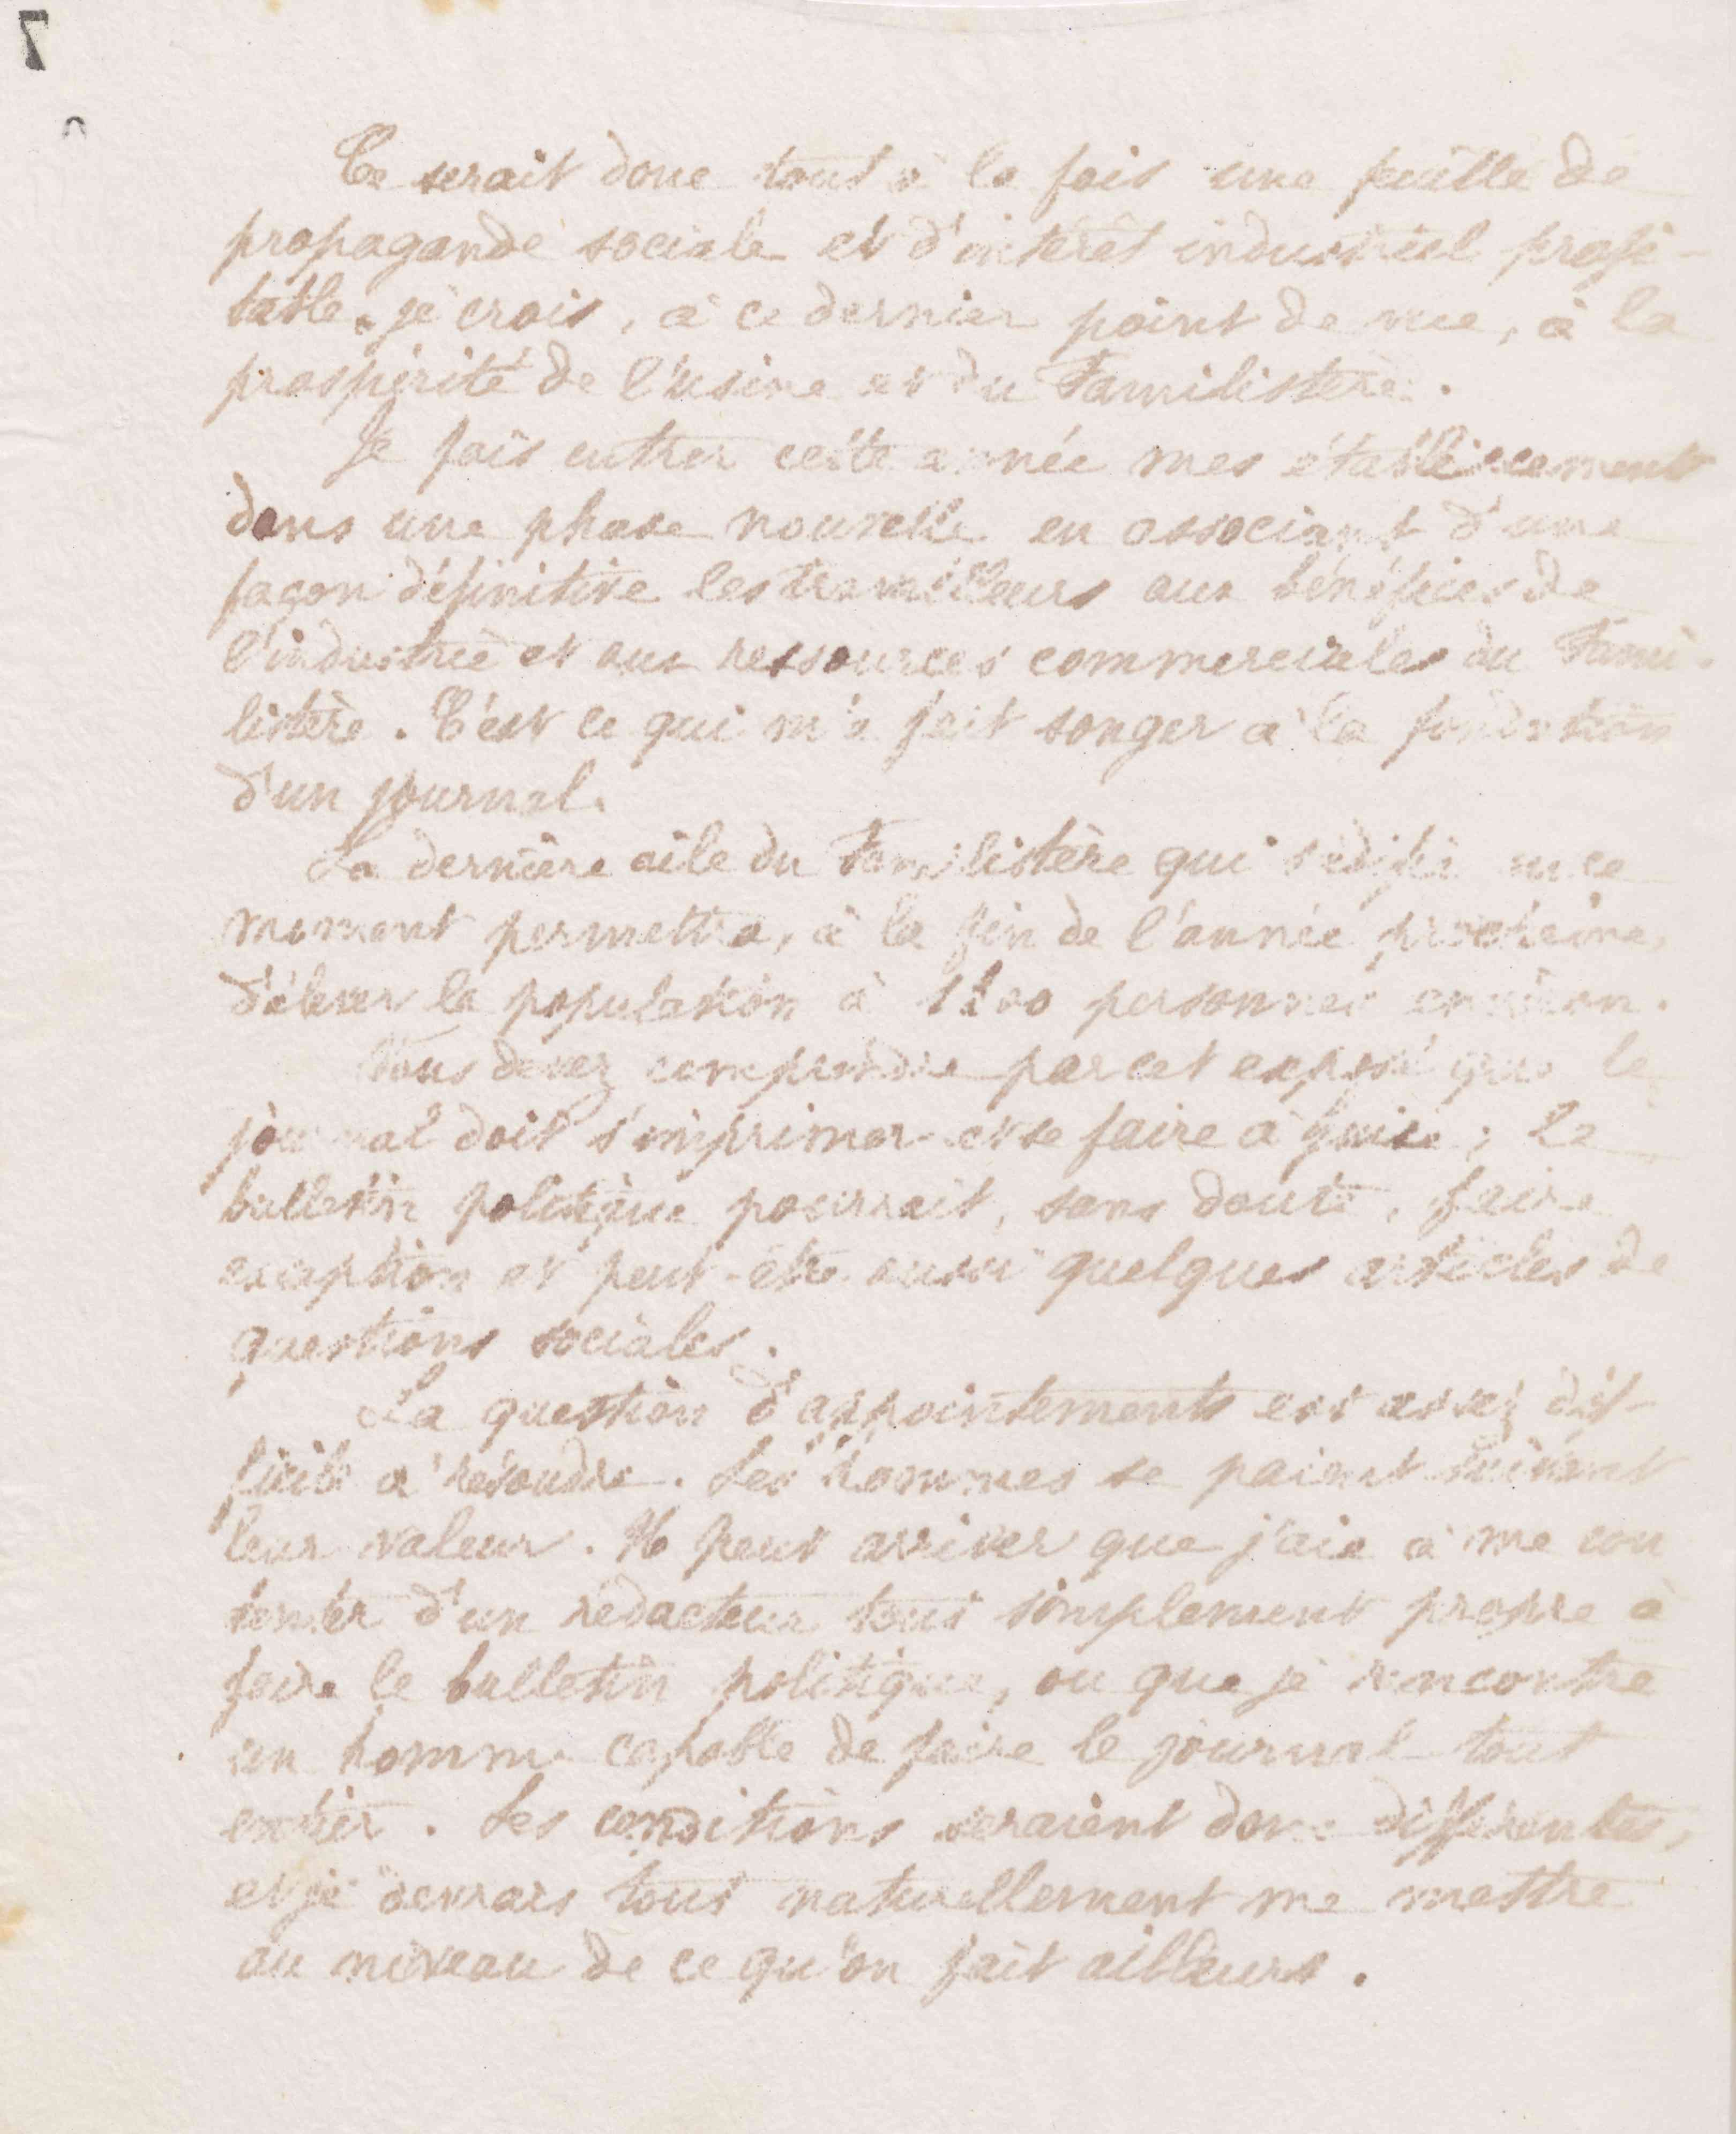 7
Ce serait donc tout à la fois une feuille de
propagande sociale et d'intérêt industriel profi-
table, je crois, à ce dernier point de vue, à la
prospérité de l'usine et du Familistère.
Je fais entrer cette année mes établissements
dans une phase nouvelle en associant d'une
façon définitive les travailleurs aux bénéfices de
l'industrie et aux ressources commerciales du Fami-
listère. C'est ce qui m'a fait songer à la fondation
d'un journal.
La dernière aile du Familistère qui s'édifie en ce
moment permettra, à la fin de l'année prochaine,
d'élever la population à personnes environ.
Vous devez comprendre par cet exposé que le
journal doit s'imprimer et se faire à Guise ; le
bulletin politique pourrait, sans doute, faire
exception et peut-être aussi quelques articles de
questions sociales.
La question d'appointements est assez dif-
ficile à résoudre. Les hommes se paient suivant
leur valeur. Il peut arriver que j'aie à me con
tenter d'un rédacteur tout simplement propre à
faire le bulletin politique, ou que je rencontre
un homme capable de faire le journal tout
entier. Les conditions seraient donc différentes,
et je devrais tout naturellement me mettre
au niveau de ce qu'on fait ailleurs.